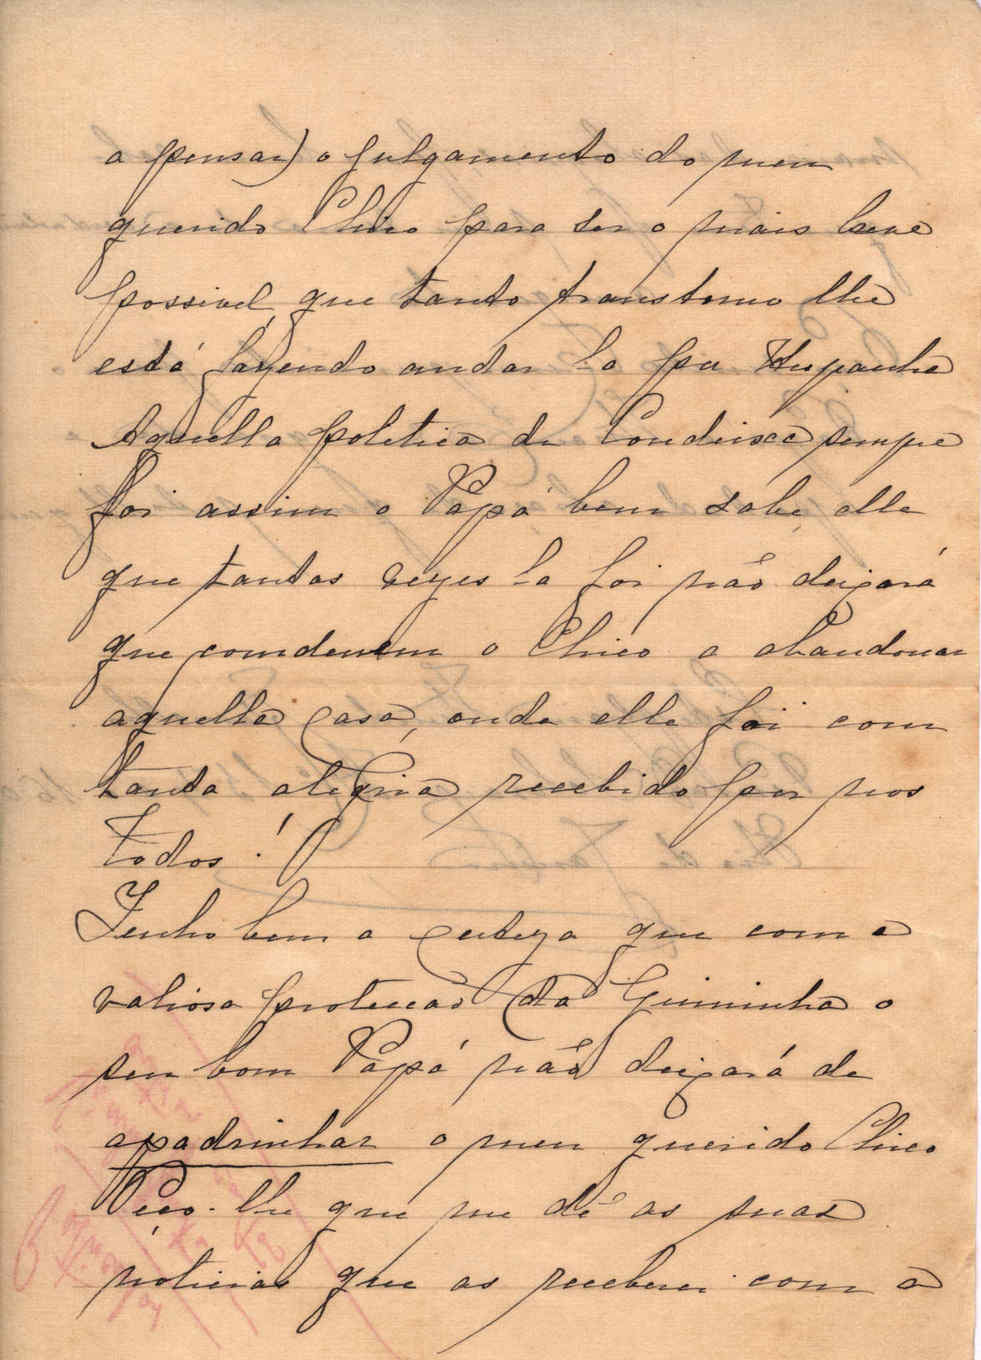 a pensar) o julgamento do meu
querido Chico para ser o mais breve
possivel, que tanto transtorno lhe
está fazendo andar la por Hespanha
Aquella politica de Condeixa sempre
foi assim o Papá bem sabe, elle
que tantas vezes la foi não deixará
que comdenem o Chico a abandonar
aquella casa, onde elle foi com
tanta alegria recebido por nos
todos!
Tenho bem a certeza que com a
valiosa protecção da Guiminha o
seu bom Papá não deixará de
apadrinhar o meu querido Chico
Peço-lhe que me dê as suas
noticias que as receberei com a